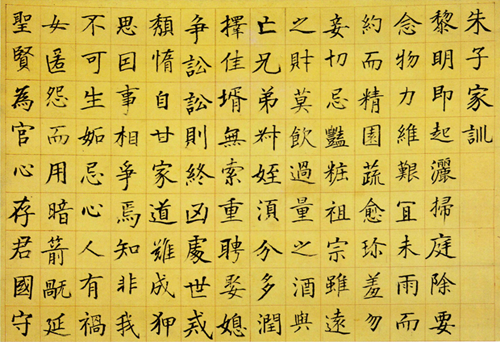 朱子家訓
黎明即起灑掃庭除要
念物力維艱冝未雨而
約而精園蔬愈珍羞勿
妾切忌豔粧祖宗雖遠
之財莫飲過量之酒與
亡兄弟叔姪湏分多潤
擇佳壻無索重聘娶媳
爭訟訟則終凶處世戒
頹惰自甘家道難成狎
思囙事相爭焉知非我
不可生妬忌心人有禍
女匿怨而用暗箭旤延
聖賢為官心存君國守